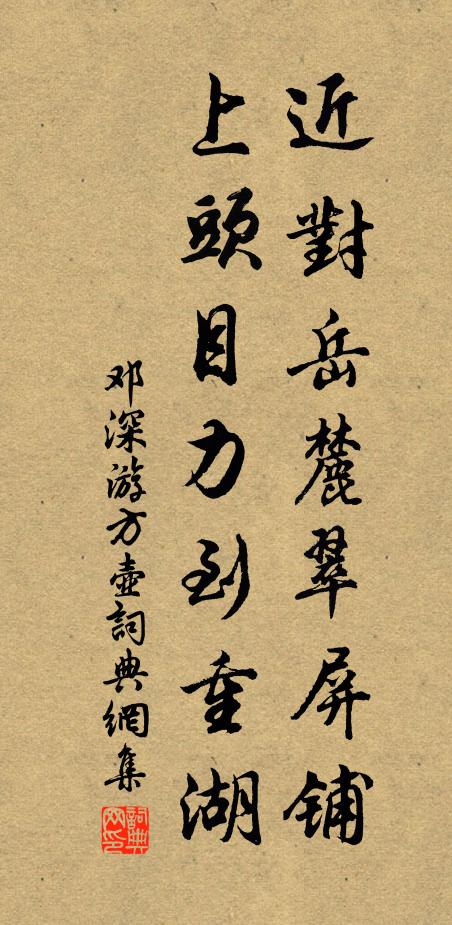 近對岳麓翠屏铺
上頭目力到重湖
邓深游方壺詞典網集
詞典网印